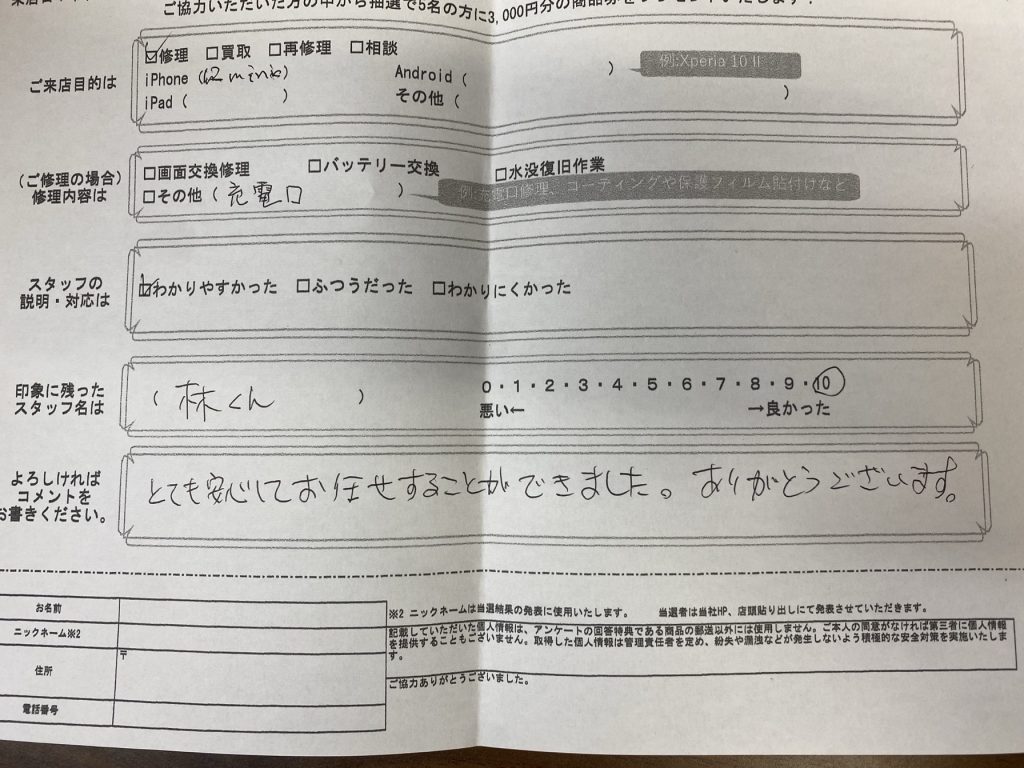 ご協力いただいた方の中から抽選で5名の方に3,000円分の商品券をプレゼントいたします！
ご来店目的は
☑修理 □買取 □再修理 □相談
iPhone (12 mini) Android ( ) 例:Xperia 10 II
iPad ( ) その他 ( )
（ご修理の場合）
修理内容は
□画面交換修理 □バッテリー交換 □水没復旧作業
□その他 ( 充電口 ) 例:充電口修理、コーティングや保護フィルム貼付けなど
スタッフの
説明・対応は
☑わかりやすかった □ふつうだった □わかりにくかった
印象に残った
スタッフ名は
( 林くん ) 0・1・2・3・4・5・6・7・8・9・10
悪い← →良かった
よろしければ
コメントを
お書きください。
とても安心してお任せすることができました。ありがとうございます。
お名前
ニックネーム※2
住所
〒
電話番号
※2 ニックネームは当選結果の発表に使用いたします。 当選者は当社HP、店頭貼り出しにて発表させていただきます。
記載していただいた個人情報は、アンケートの回答特典である商品の郵送以外には使用しません。ご本人の同意がなければ第三者に個人情報
を提供することもございません。取得した個人情報は管理責任者を定め、紛失や漏洩などが発生しないよう積極的な安全対策を実施いたしま
す。
ご協力ありがとうございました。